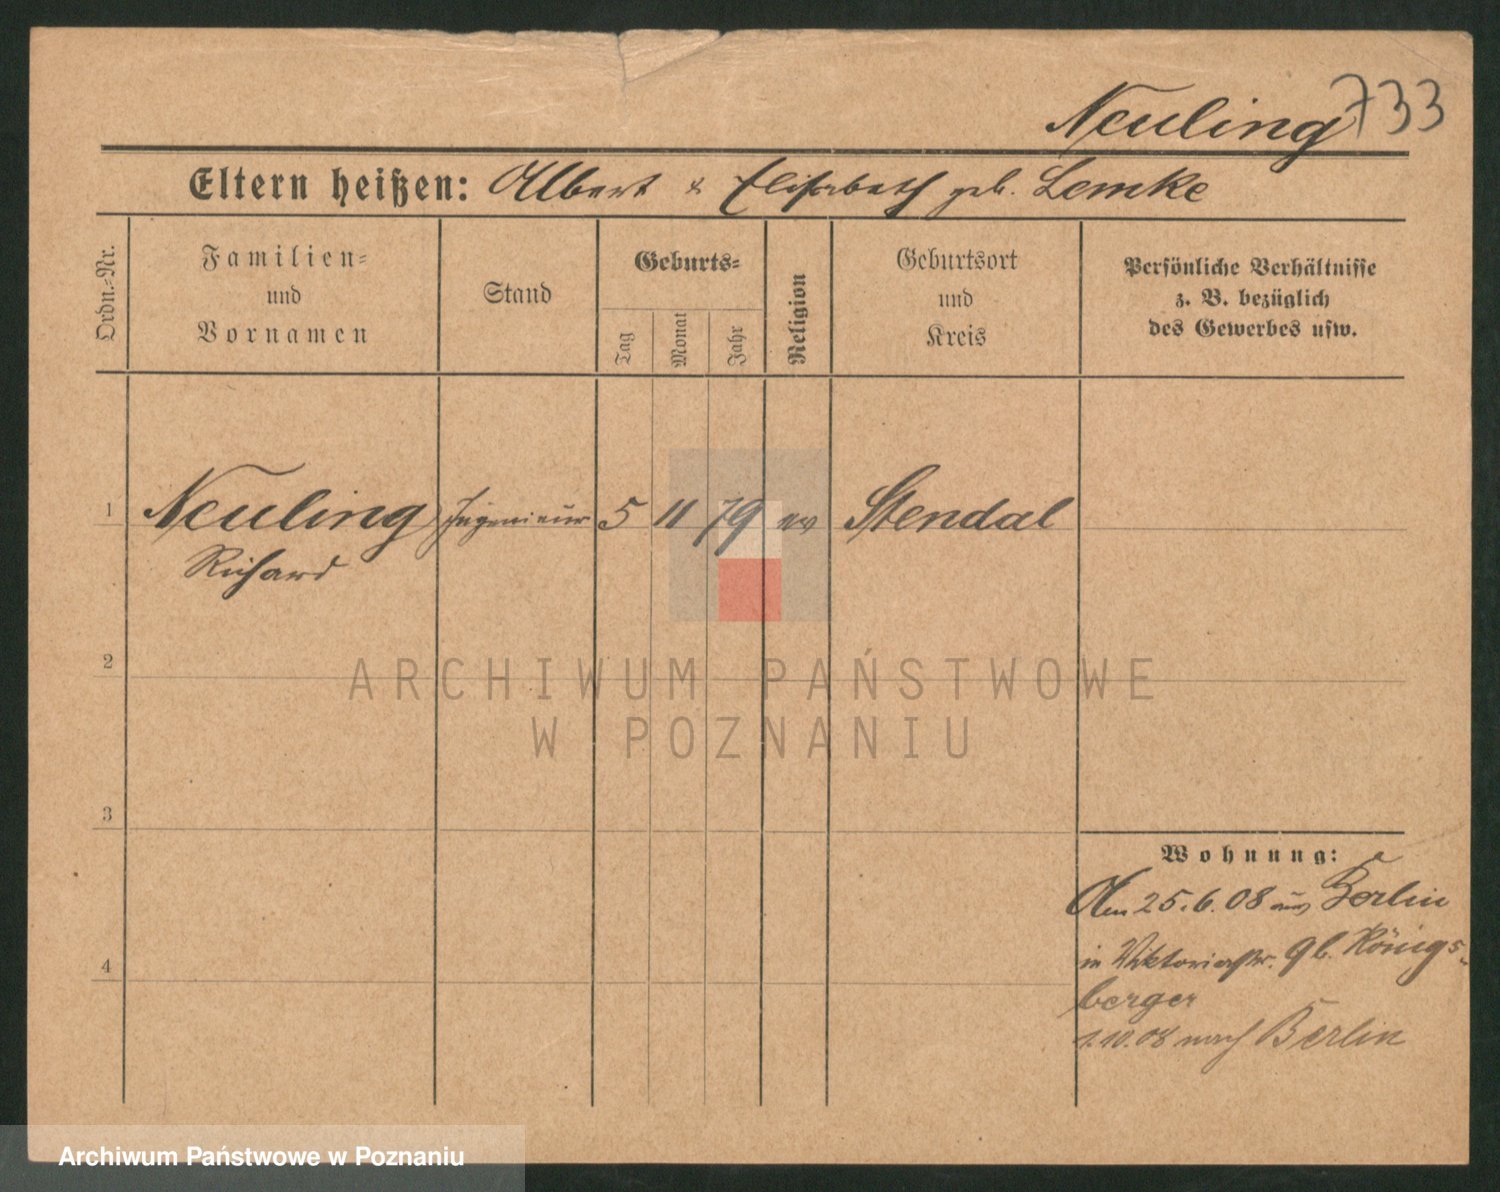 Neuling 733
Eltern heißen: Albert & Elisabeth geb. Lemke
Ordn.-Nr.
Familien-
und
Vornamen
Stand
Geburts-
Tag
Monat
Jahr
Religion
Geburtsort
und
Kreis
Persönliche Verhältnisse
z. B. bezüglich
des Gewerbes usw.
1 Neuling Ingenieur 5 11 79 ev Stendal
Richard
2
ARCHIWUM PAŃSTWOWE
W POZNANIU
3
Wohnung:
Am 25.6.08 aus Berlin
4
in Viktoriastr. 9 b. Königs-
berger
1.10.08 nach Berlin
Archiwum Państwowe w Poznaniu